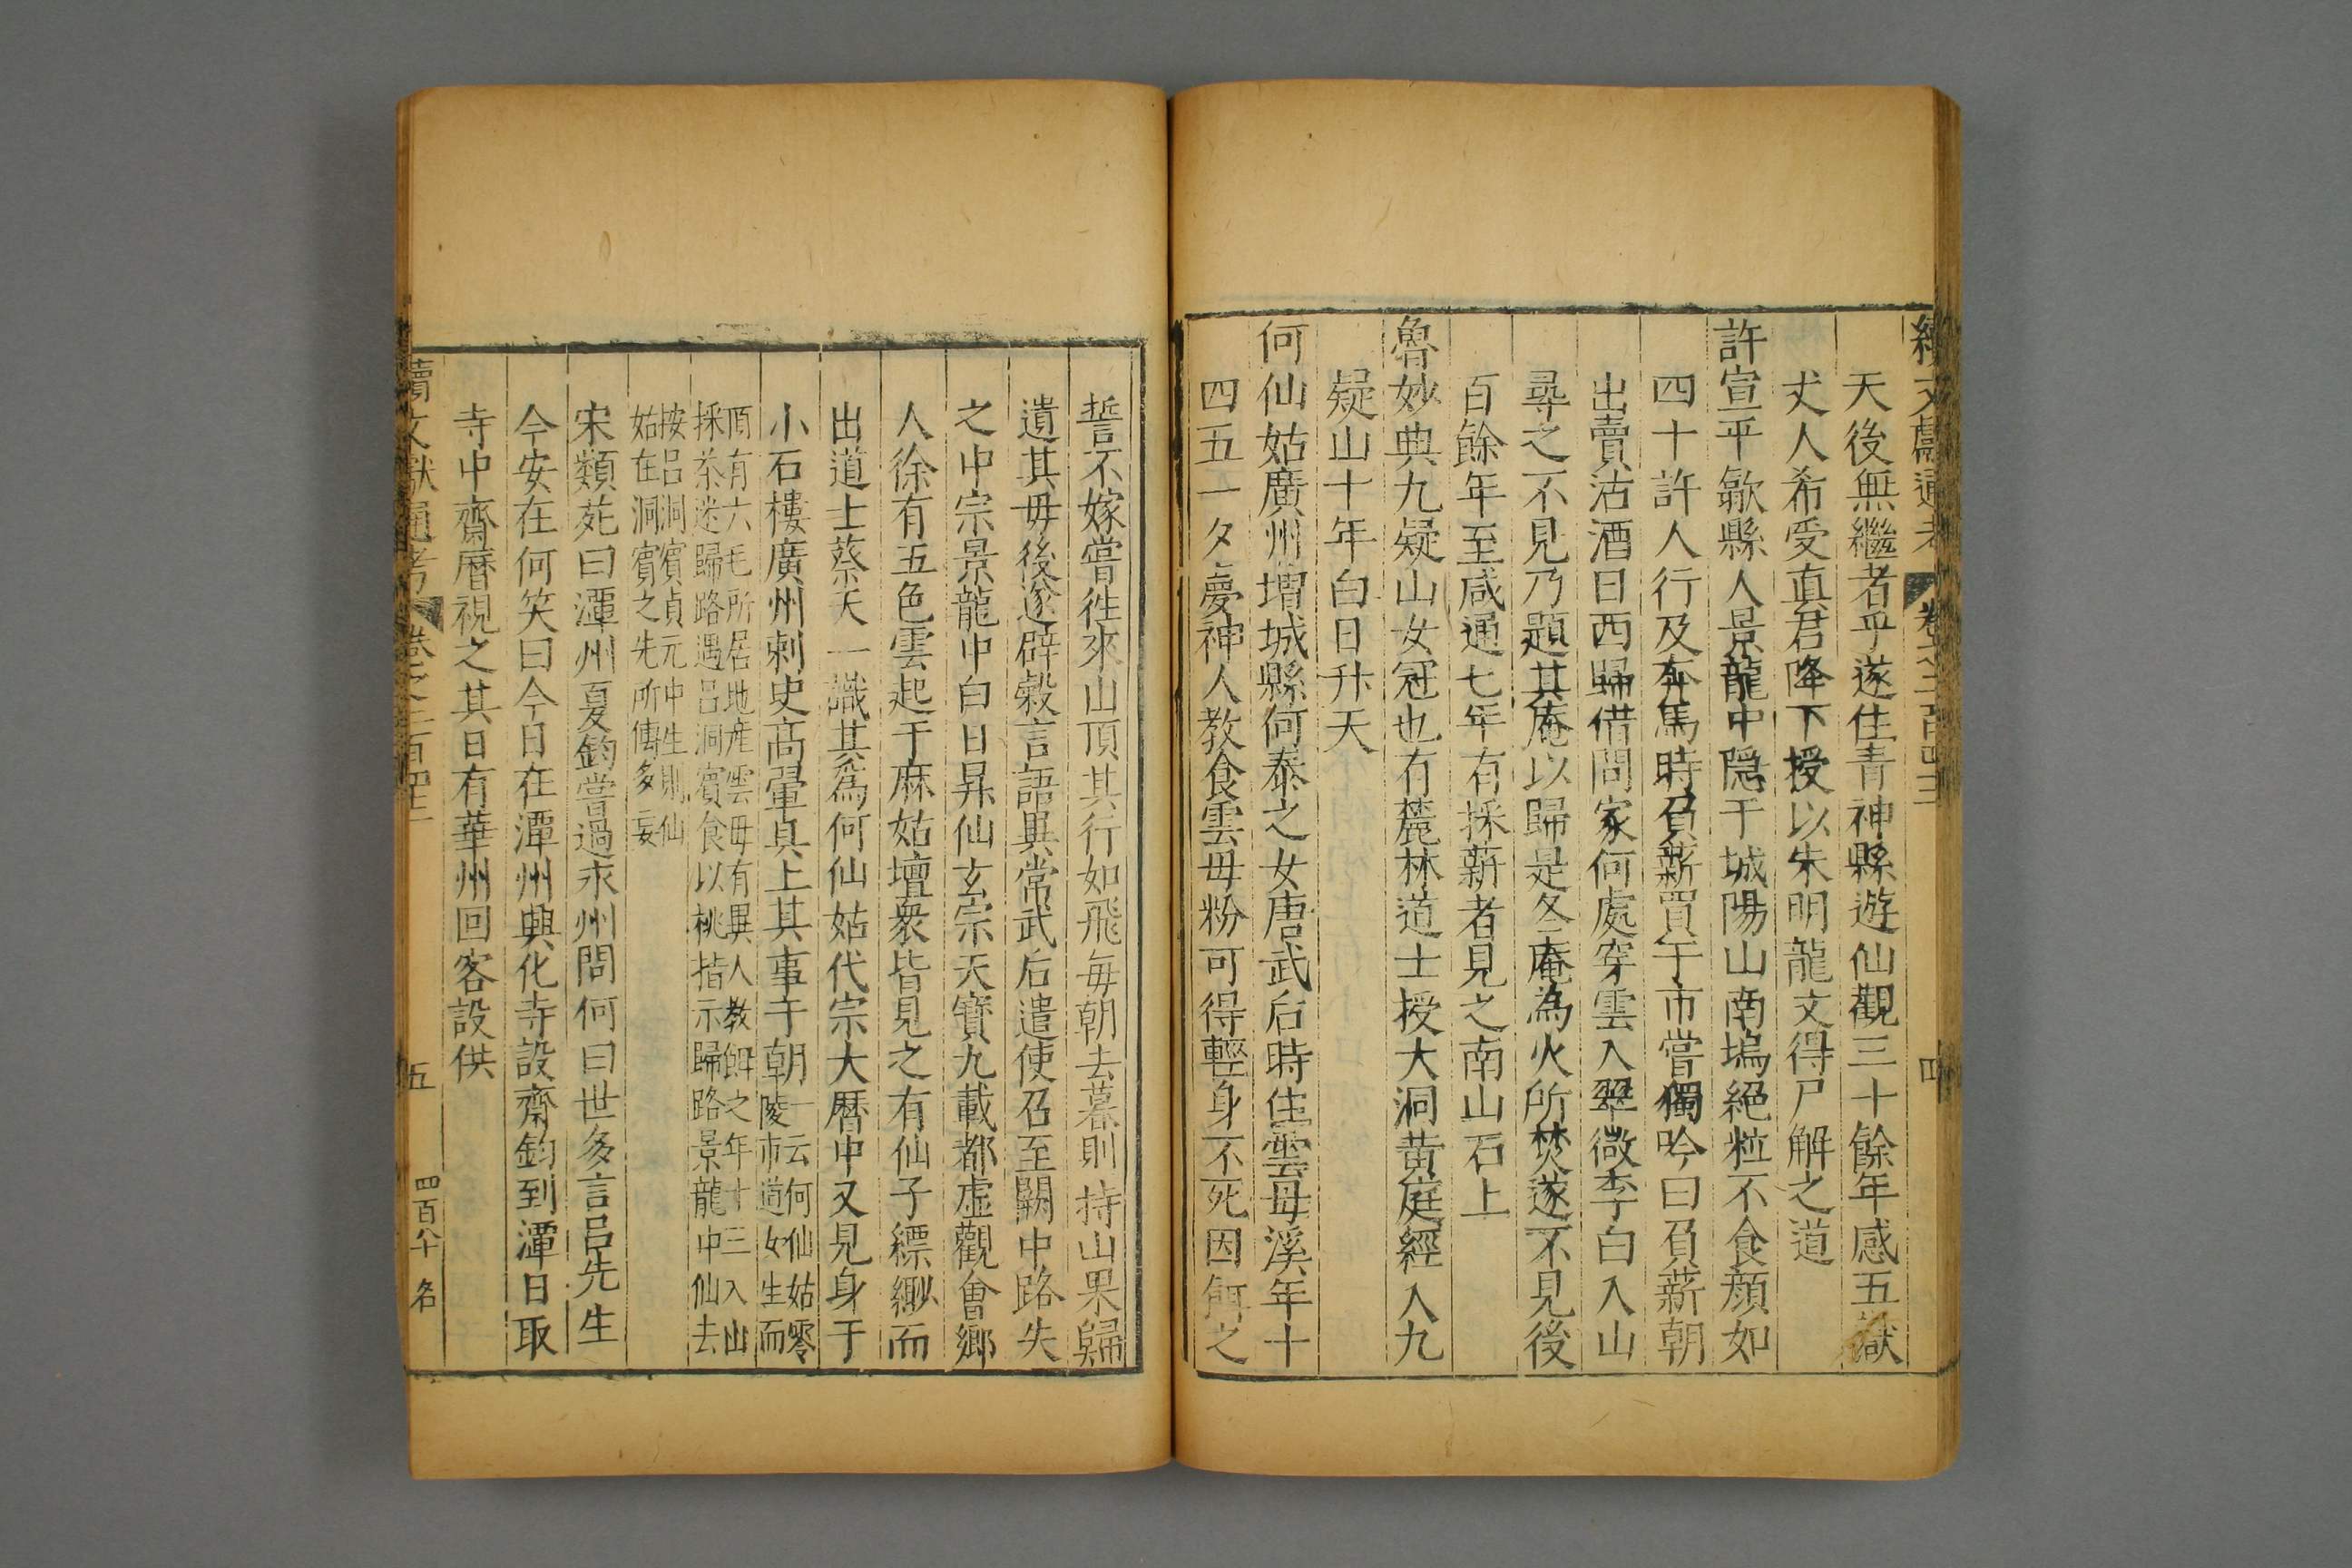 續文獻通考 卷之二百四三 四
天後無繼者乎遂住青神縣遊仙觀三十餘年感五嶽
丈人希受真君降下授以朱明龍文得尸解之道
許宣平歙縣人景龍中隠于城陽山南塢絕粒不食顏如
四十許人行及奔馬時負薪賣于市嘗獨吟曰負薪朝
出賣沽酒日西歸借問家何處穿雲入翠微李白入山
尋之不見乃題其庵以歸是冬庵為火所焚遂不見後
百餘年至咸通七年有採薪者見之南山石上
魯妙典九疑山女冠也有麓林道士授大洞黄庭經入九
疑山十年白日升天
何仙姑廣州增城縣何泰之女唐武后時住雲母溪年十
四五一夕夢神人教食雲母粉可得輕身不死因餌之
誓不嫁嘗徃來山頂其行如飛毎朝去暮則持山果歸
遺其母後遂辟穀言語異常武后遣使召至闕中路失
之中宗景龍中白日昇仙玄宗天寶九載都虛觀會鄉
人徐有五色雲起于麻姑壇衆皆見之有仙子縹緲而
出道士蔡天一識其爲何仙姑代宗大曆中又見身于
小石樓廣州刺史高翬具上其事于朝
一云何仙姑零
陵市道女生而
頂有六毛所居地産雲母有異人教餌之年十三入山
採茶迷歸路遇呂洞賓食以桃指示歸路景龍中仙去
按呂洞賓貞元中生則仙
姑在洞賓之先所傳多妄
宋類苑曰潭州夏鈞嘗過永州問何曰世多言呂先生
今安在何笑曰今日在潭州興化寺設齋鈞到潭日取
寺中齋曆視之其日有華州回客設供
續文獻通考 卷之二百四三 五 四百八十 名